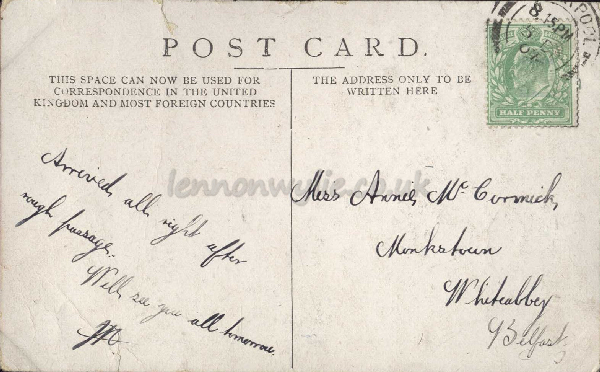 POST CARD.
THIS SPACE CAN NOW BE USED FOR
CORRESPONDENCE IN THE UNITED
KINGDOM AND MOST FOREIGN COUNTRIES
THE ADDRESS ONLY TO BE
WRITTEN HERE
8.15PM
HALF PENNY
lennonwylie.co.uk
Arrived all right after
rough passage.
Will see you all tomorrow.
Miss Annie Mc Cormick,
Monkstown
Whiteabbey
Belfast